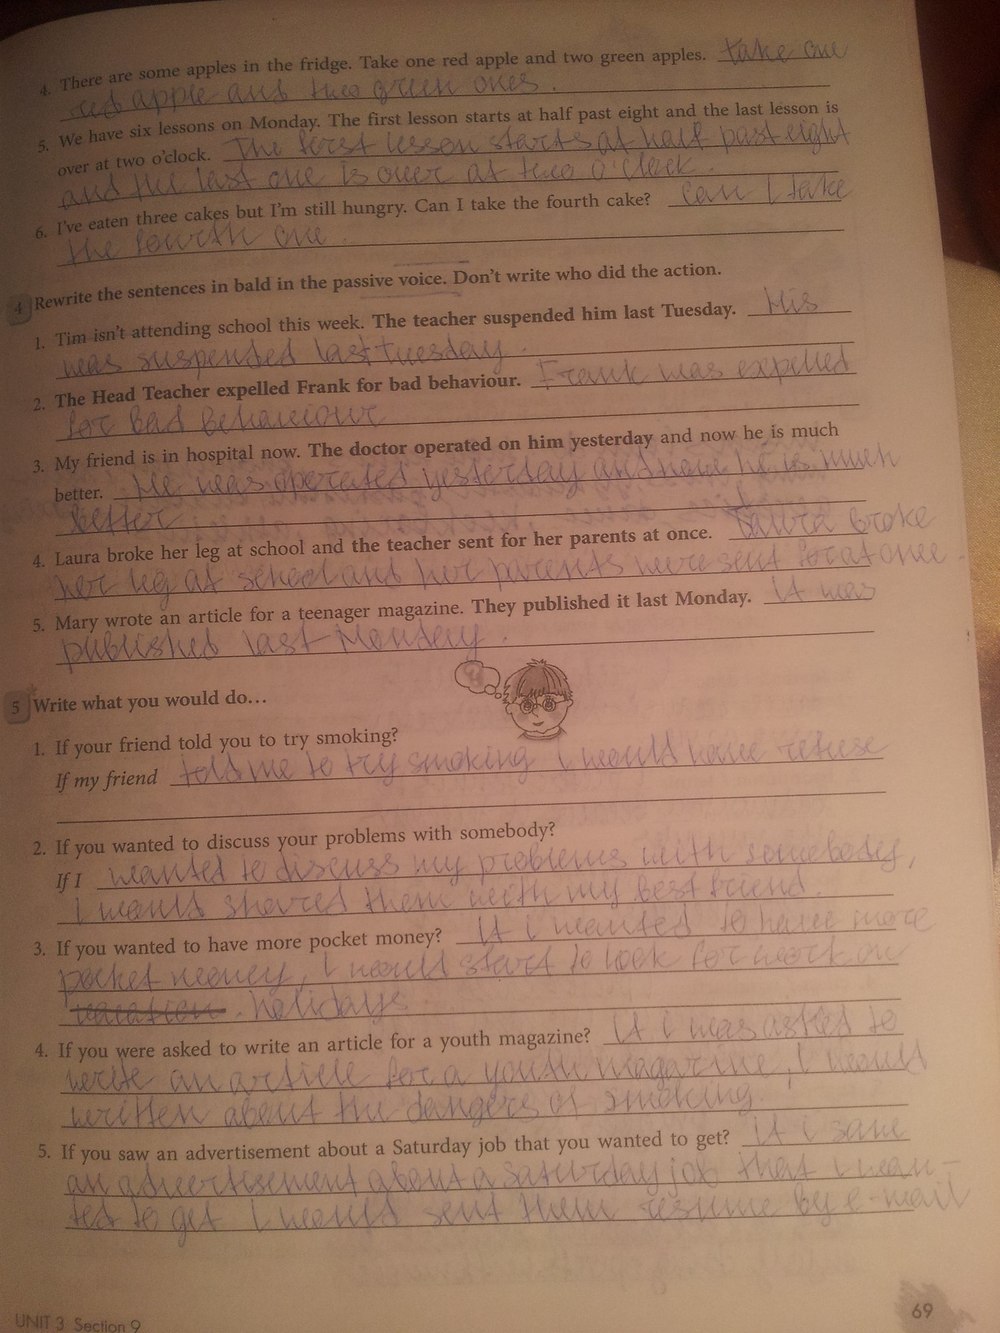 4. There are some apples in the fridge. Take one red apple and two green apples. take one
red apple and two green ones.
5. We have six lessons on Monday. The first lesson starts at half past eight and the last lesson is
over at two o'clock. The first lesson starts at half past eight
and the last one is over at two o'clock.
6. I've eaten three cakes but I'm still hungry. Can I take the fourth cake? Can I take
the fourth one.
4 Rewrite the sentences in bald in the passive voice. Don't write who did the action.
1. Tim isn't attending school this week. The teacher suspended him last Tuesday. His
was suspended last tuesday.
2. The Head Teacher expelled Frank for bad behaviour. Frank was expelled
for bad behaviour
3. My friend is in hospital now. The doctor operated on him yesterday and now he is much
better. He was operated yesterday and now he is much
better.
4. Laura broke her leg at school and the teacher sent for her parents at once. Laura broke
her leg at school and her parents were sent for at once.
5. Mary wrote an article for a teenager magazine. They published it last Monday. It was
published last Monday.
5 Write what you would do...
1. If your friend told you to try smoking?
If my friend told me to try smoking I would have refuse
2. If you wanted to discuss your problems with somebody?
If I wanted to discuss my problems with somebody,
I would shared them with my best friend.
3. If you wanted to have more pocket money? If I wanted to have more
pocket money, I would start to look for work on
vacation. holidays.
4. If you were asked to write an article for a youth magazine? If I was asked to
write an article for a youth magazine, I would
written about the dangers of smoking.
5. If you saw an advertisement about a Saturday job that you wanted to get? If I saw
an advertisement about a saturday job that I wan-
ted to get I would sent them resume by e-mail
UNIT 3 Section 9
69